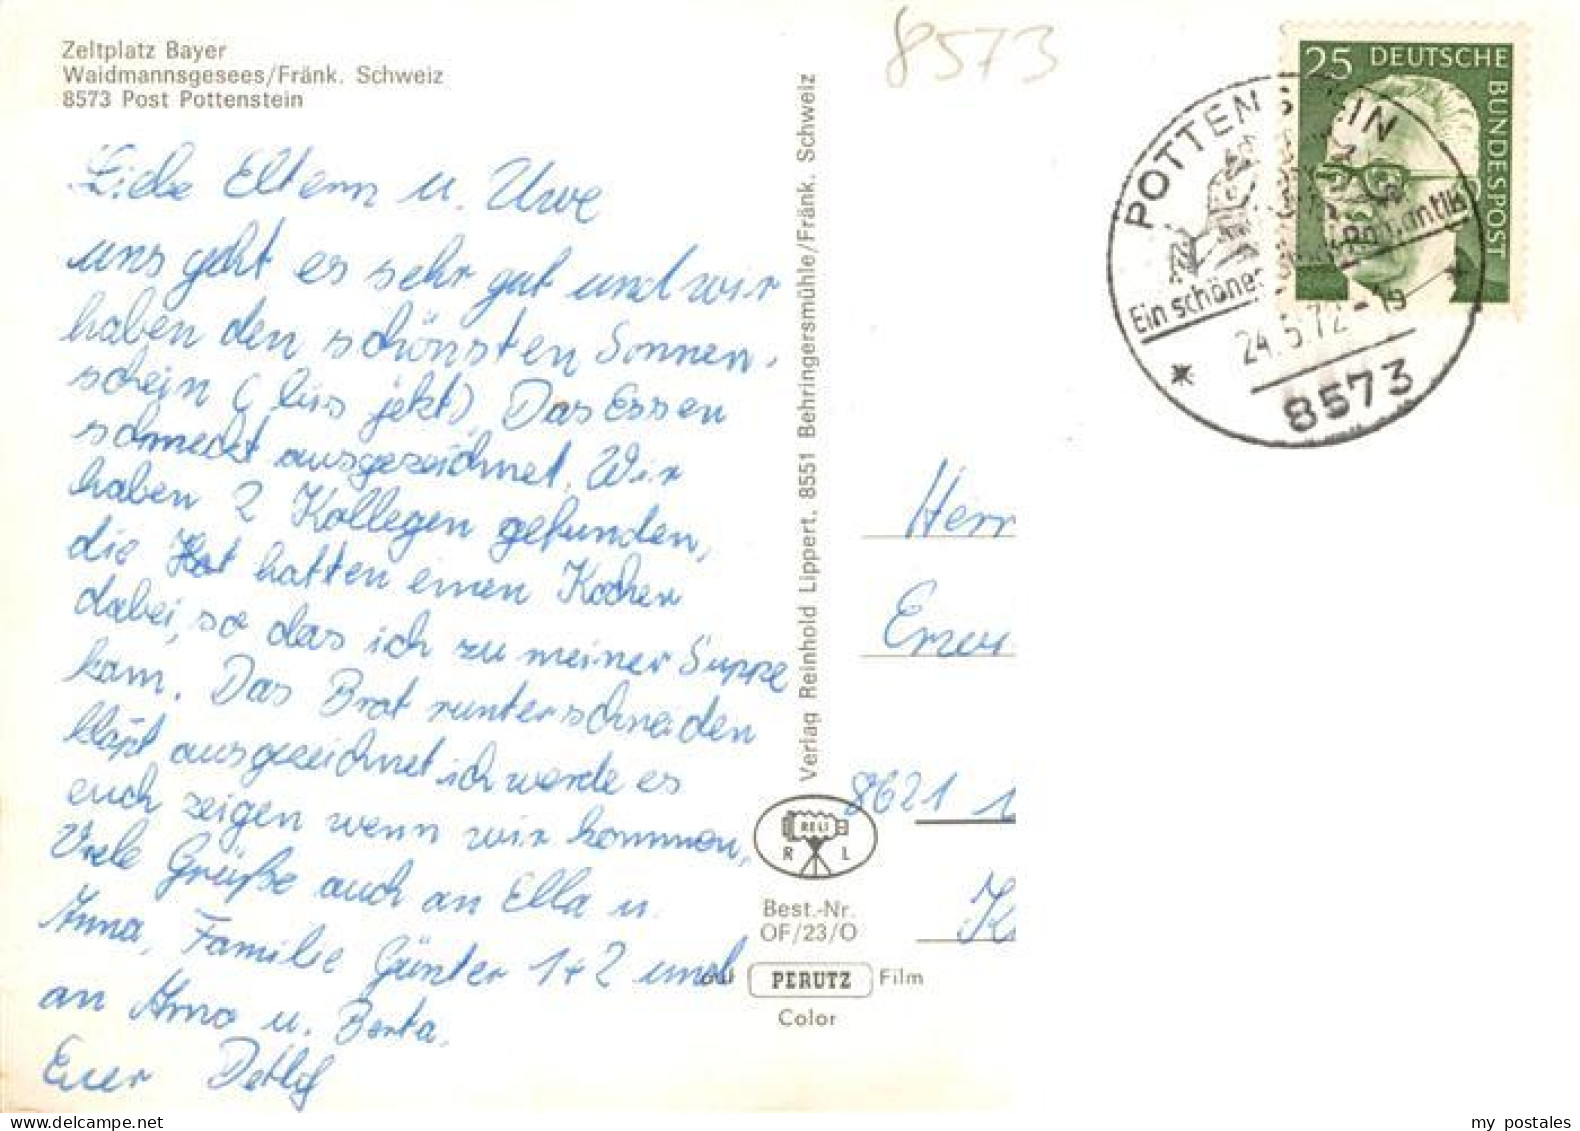 Zeltplatz Bayer
Waidmannsgesees/Fränk. Schweiz
8573 Post Pottenstein
Liebe Eltern u. Uwe
uns geht es sehr gut und wir
haben den schönsten Sonnen-
schein (bis jetzt). Das Essen
schmeckt ausgezeichnet. Wir
haben 2 Kollegen gefunden,
die hatten einen Kocher
dabei, so das ich zu meiner Suppe
kam. Das Brot runterschneiden
kläpt ausgezeichnet ich werde es
euch zeigen wenn wir kommen,
Viele Grüße auch an Ella u.
Anna, Familie Günter 1+2 und
an Arno u. Berta.
Euer Detlef
Verlag Reinhold Lippert, 8551 Behringersmühle/Fränk. Schweiz
RELI
R L
Best.-Nr.
OF/23/O
auf PERUTZ Film
Color
8573
25 DEUTSCHE
BUNDESPOST
POTTENSTEIN
Ein schönes Romantik
24.5.72-19
8573
Herr
8621
my postales